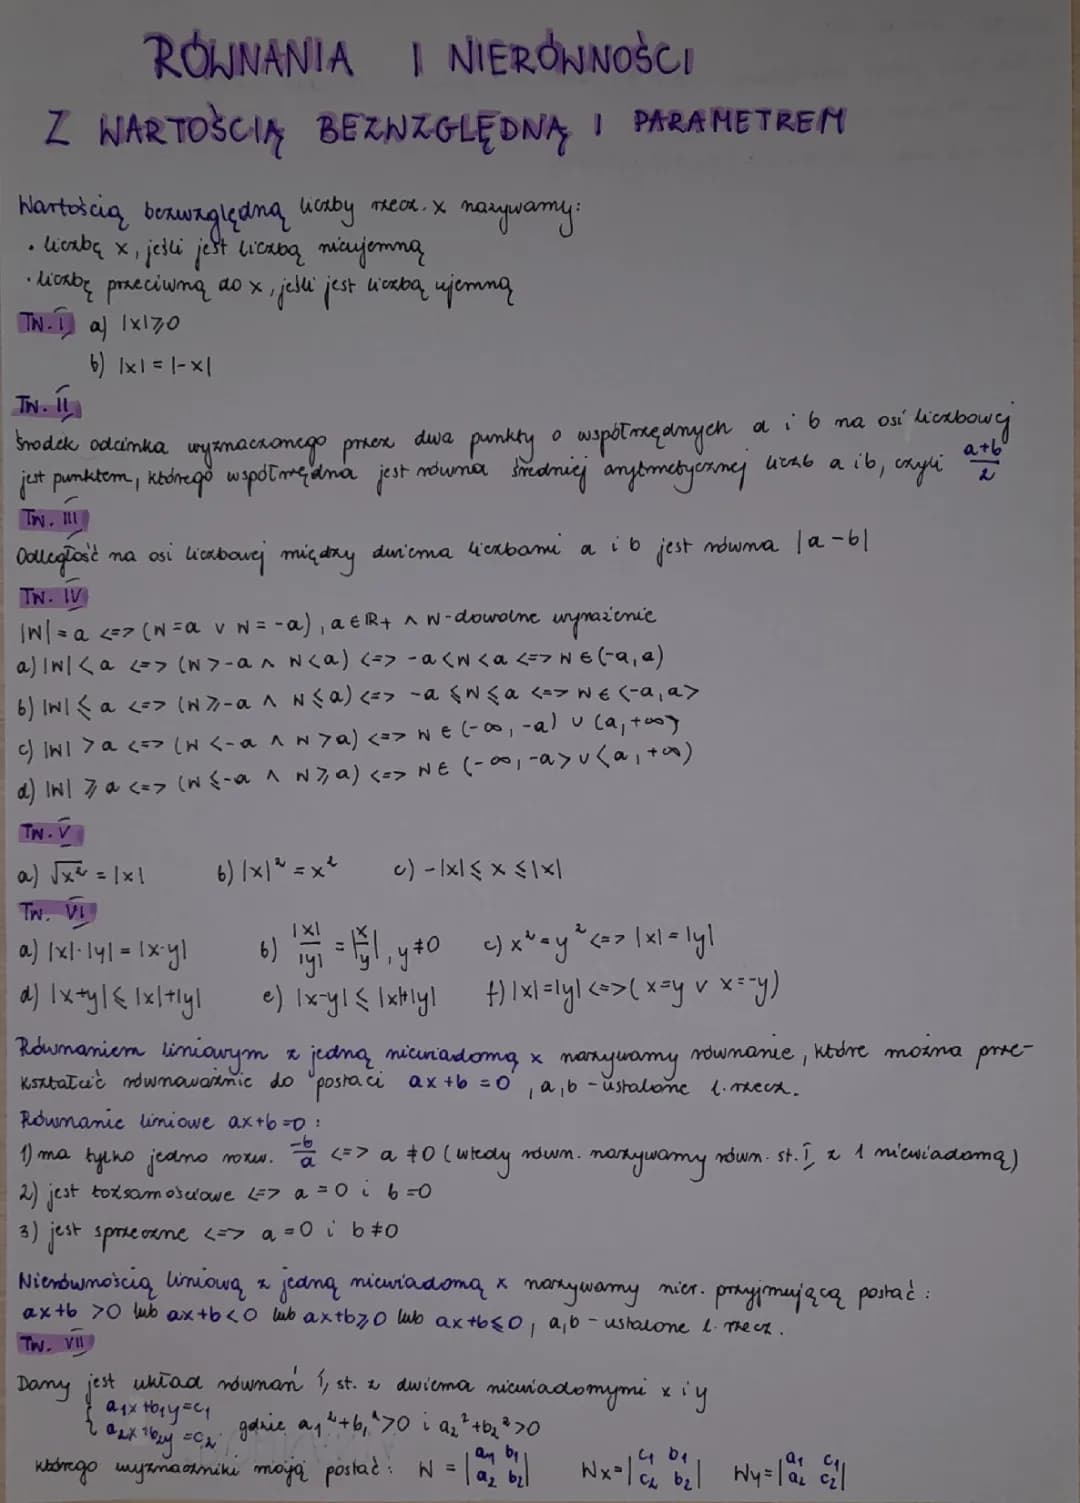 RÓWNANIA I NIERÓWNOŚCI
Z WARTOŚCIĄ BEZWZGLĘDNĄ I PARAMETREM
Wartością bezwzględną liczby rzecz. x nazywamy:
• liczbę x, jeśli jest liczbą nieujemną
• liczbę przeciwną do x, jeśli jest liczbą ujemną
TW. I a) |x|⩾0
b) |x| = |-x|
TW. II
Środek odcinka wyznaczonego przez dwa punkty o współrzędnych a i b na osi liczbowej
jest punktem, którego współrzędna jest równa średniej arytmetycznej liczb a i b, czyli a+b/2
TW. III
Odległość na osi liczbowej między dwiema liczbami a i b jest równa |a-b|
TW. IV
|W| = a <=> (W=a ∨ W=-a), a∈ℝ+ ∧ W-dowolne wyrażenie
a) |W|<a <=> (W>-a ∧ W<a) <=> -a<W<a <=> W∈(-a,a)
b) |W|⩽a <=> (W⩾-a ∧ W⩽a) <=> -a⩽W⩽a <=> W∈<-a,a>
c) |W|>a <=> (W<-a ∧ W>a) <=> W∈(-∞,-a) ∪ (a,+∞)
d) |W|⩾a <=> (W⩽-a ∧ W⩾a) <=> W∈(-∞,-a>∪<a,+∞)
TW. V
a) √x² = |x| b) |x|² = x² c) -|x|⩽x⩽|x|
TW. VI
a) |x|·|y| = |x·y| b) |x|/|y| = |x/y|, y≠0 c) x²=y² <=> |x|=|y|
d) |x+y|⩽|x|+|y| e) |x-y|⩽|x|+|y| f) |x|=|y| <=> (x=y ∨ x=-y)
Równaniem liniowym z jedną niewiadomą x nazywamy równanie, które można prze-
kształcić równoważnie do postaci ax+b=0, a,b - ustalone l. rzecz.
Równanie liniowe ax+b=0:
1) ma tylko jedno rozw. -b/a <=> a≠0 (wtedy równ. nazywamy równ. st. I z 1 niewiadomą)
2) jest tożsamościowe <=> a=0 i b=0
3) jest sprzeczne <=> a=0 i b≠0
Nierównością liniową z jedną niewiadomą x nazywamy nier. przyjmującą postać:
ax+b>0 lub ax+b<0 lub ax+b⩾0 lub ax+b⩽0, a,b - ustalone l. rzecz.
TW. VII
Dany jest układ równań I st. z dwiema niewiadomymi x i y
{ a₁x+b₁y=c₁
{ a₂x+b₂y=c₂ gdzie a₁²+b₁²>0 i a₂²+b₂²>0
którego wyznaczniki mają postać: W = |a₁ b₁ a₂ b₂| Wx=|c₁ b₁ c₂ b₂| Wy=|a₁ c₁ a₂ c₂|